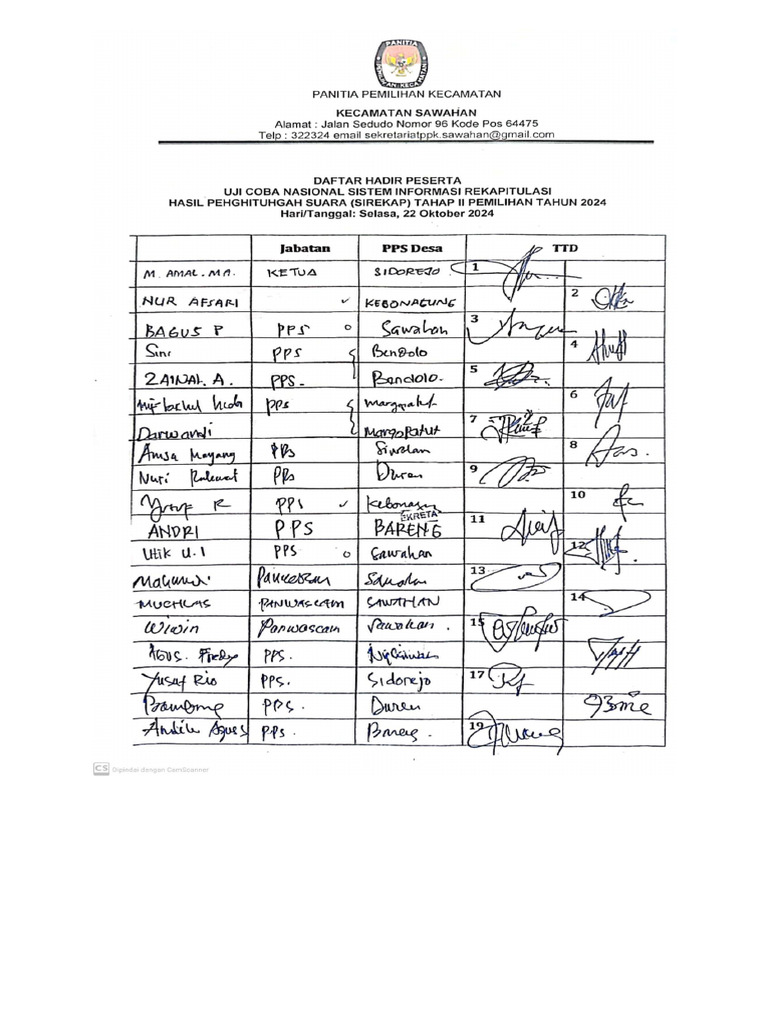 PANITIA
PEMILIHAN KECAMATAN
PANITIA PEMILIHAN KECAMATAN
KECAMATAN SAWAHAN
Alamat : Jalan Sedudo Nomor 96 Kode Pos 64475
Telp : 322324 email sekretariatppk.sawahan@gmail.com
DAFTAR HADIR PESERTA
UJI COBA NASIONAL SISTEM INFORMASI REKAPITULASI
HASIL PENGHITUHGAH SUARA (SIREKAP) TAHAP II PEMILIHAN TAHUN 2024
Hari/Tanggal: Selasa, 22 Oktober 2024
Jabatan PPS Desa TTD
M. AMAL. MA. KETUA SIDOREJO 1
NUR AFSARI KEBONAGUNG 2
BAGUS P PPS Sawahan 3
Sini PPS Bendolo 4
ZAINAL. A. PPS. Bendolo. 5
PPS 6
Darwandi Margopatut 7
Anisa Mayang PPS Siwalan 8
Nuri Rahmat PPS Duren 9
Yusuf R PPS 10
EKRETA
ANDRI PPS BARENG 11
Utik U.I PPS Sawahan 12
Sawahan 13
MUCHLAS PANWASCAM SAWAHAN 14
Wiwin Panwascam Sawahan. 15
Agus. PPS.
Yusuf Rio PPS. Sidorejo 17
Bambang PPS. Duren
Agus PPS. Bareng. 19
CS Dipindai dengan CamScanner